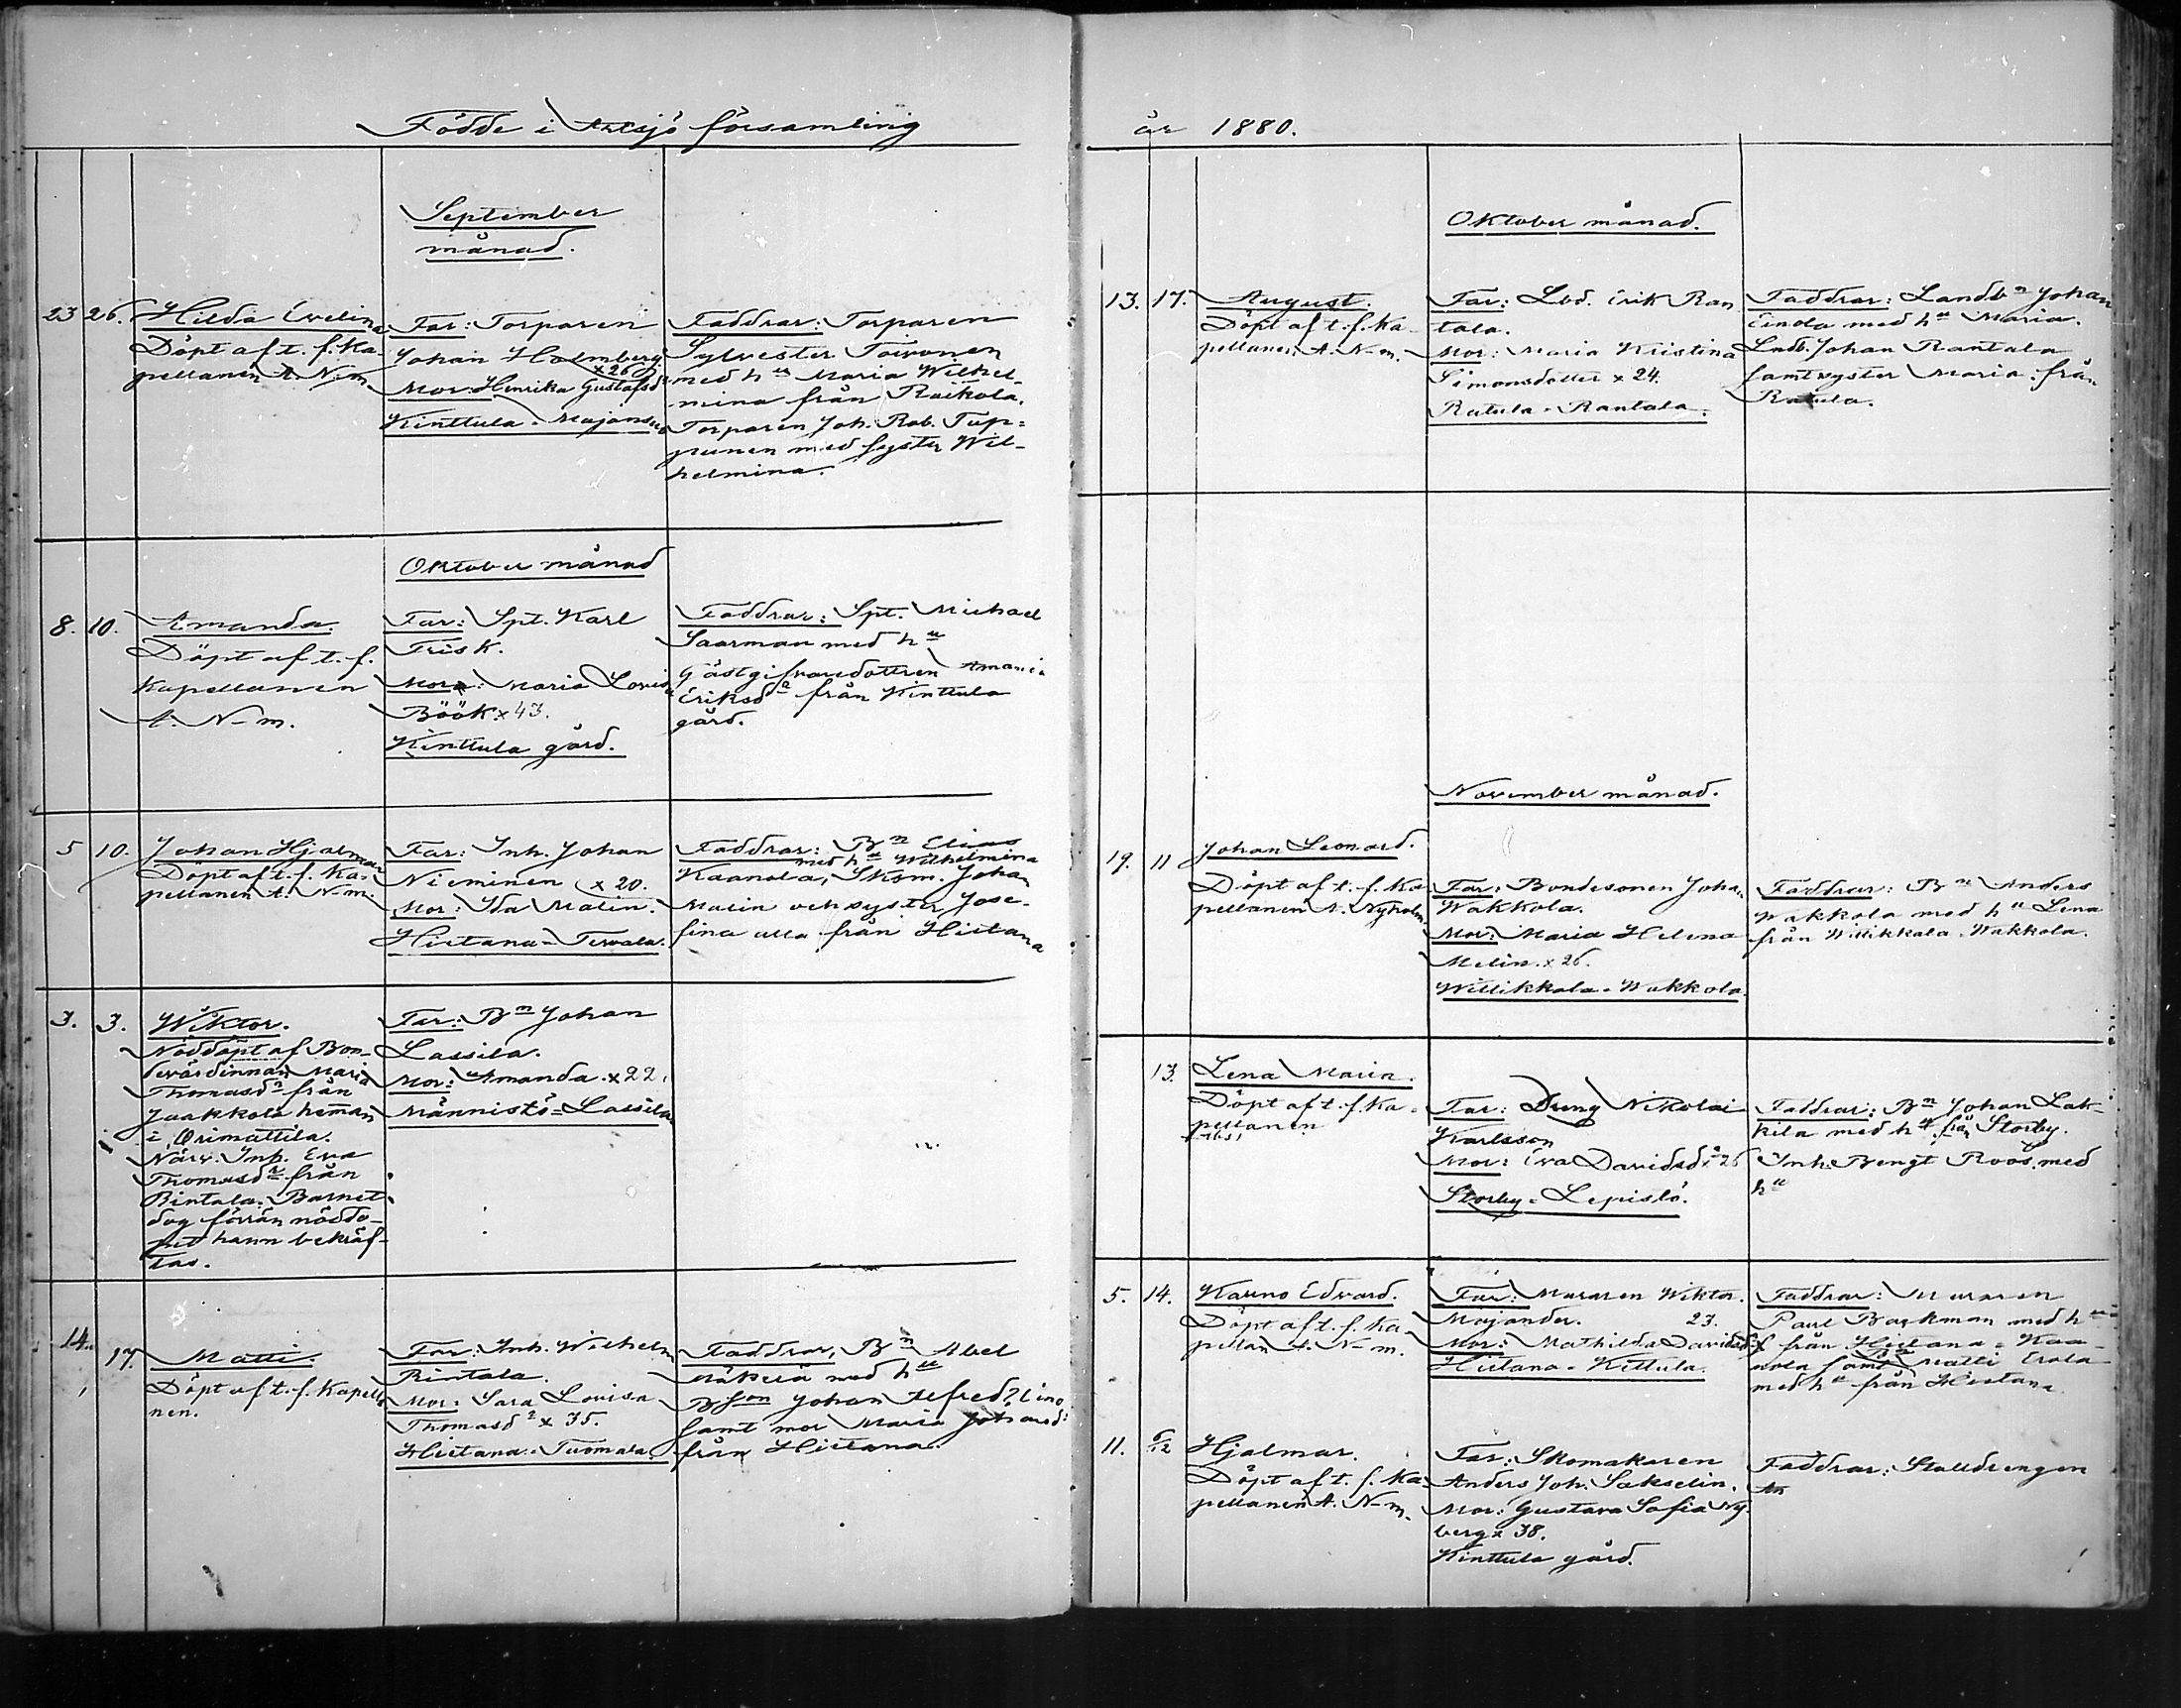 Födde i Artsjö församling
September
månad.
23 26. Hilda Evelina
Döpt af t. f. Ka-
pellanen A. N-m.
Far: Torparen
Johan Holmberg
x 26
Mor: Henrika Gustafsdr
Kinttula - Majansuo
Faddrar: Torparen
Sylvester Toivonen
med hu Maria Wilhel-
mina från Raikola.
Torparen Joh. Rob. Tup=
punen med syster Wil-
helmina.
Oktober månad
8. 10. Amanda.
Döpt af t. f.
Kapellanen
A. N-m.
Far: Spt. Karl
Frisk.
Mor: Maria Lovisa
Böök x 43.
Kinttula gård.
Faddrar: Spt. Michael
Saarman med hu
Gästgifvaredottren Amanda
Eriksdr från Kinttula
gård.
5 10. Johan Hjalmar
Döpt af t. f. Ka-
pellanen A. N-m.
Far: Inh. Johan
Nieminen x 20.
Mor: Ida Malin.
Hietana - Tervala.
Faddrar: Bn Elias
med hu Wilhelmina
Kaanola, Skom. Johan
Malin och syster Jose-
fina alla från Hietana
3. 3. Wiktor.
Nöddöpt af Bon-
devärdinnan Maria
Thomasdr från
Jaakkola heman
i Orimattila.
Närv. Inh. Eva
Thomasdr från
Rintala. Barnet
dog förrän nöddo-
pet hann bekräf-
tas.
Far: Bn Johan
Lassila.
Mor: Amanda. x 22.
Männistö = Lassila
14. 17. Matti.
Döpt af t. f. Kapella
nen.
Far: Inh. Wilhelm
Rintala.
Mor: Sara Lovisa
Thomasdr x 35.
Hietana - Tuomala
Faddrar, Bn Abel
Mäkelä med hu
Bson Johan Alfred
samt mor Maria Johansd:
från Hietana.
år 1880.
Oktober månad.
13. 17. August.
Döpt af t. f. Ka-
pellanen A. N-m.
Far: Lbd. Erik Ran
tala.
Mor: Maria Kristina
Simonsdotter x 24.
Ratula - Rantala.
Faddrar: Landbn Johan
Einola med hu Maria.
Landb. Johan Rantala
samt syster Maria från
Ratula.
November månad.
19. 11 Johan Leonard.
Döpt af t. f. Ka-
pellanen A. Nyholm
Far: Bondesonen Johan
Wakkola.
Mor: Maria Helena
Melin. x 26.
Willikkala - Wakkola.
Faddrar: Bn Anders
Wakkola med hu Lena
från Willikkala. Wakkola.
13. Lena Maria.
Döpt af t. f. Ka=
pellanen
Far: Dreng Nikolai
Karlsson
Mor: Eva Davidsdr x 26
Storby - Lepistö.
Faddrar: Bn Johan Lak-
kila med hu från Storby.
Inh. Bengt Roos. med
hu
5. 14. Kauno Edvard.
Döpt af t. f. Ka-
pellan A. N-m.
Far: Muraren Wiktor.
Majander. 23.
Mor: Mathilda Davidsdr x
Hietana - Kettula.
Faddrar: Muraren
Paul Backman med hu
från Hietana = Kaa-
nola samt Bn Matti Erola
med hu från Hietana
11. 6/12 Hjalmar.
Döpt af t. f. Ka-
pellanen A. N-m.
Far: Skomakaren
Anders Joh. Sakselin.
Mor: Gustava Sofia Ny-
berg x 38.
Kinttula gård.
Faddrar: Stalldrengen
An